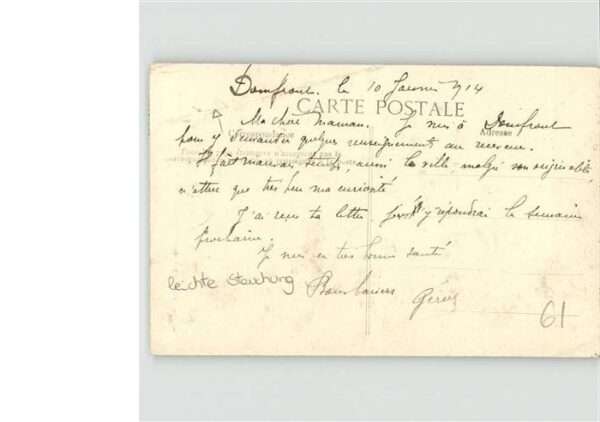 Domfront le 10 Janvier 914
CARTE POSTALE
Ma chère Maman. Je suis à Domfront
Correspondance
Adresse
pour y demander quelques renseignements au receveur.
Il fait mauvais temps, aussi la ville malgré son originalité,
n'attire que très peu ma curiosité
J'ai reçu ta lettre. J'y répondrai la semaine
prochaine.
Je suis en très bonne santé
leichte Stauchung
Bons baisers
61